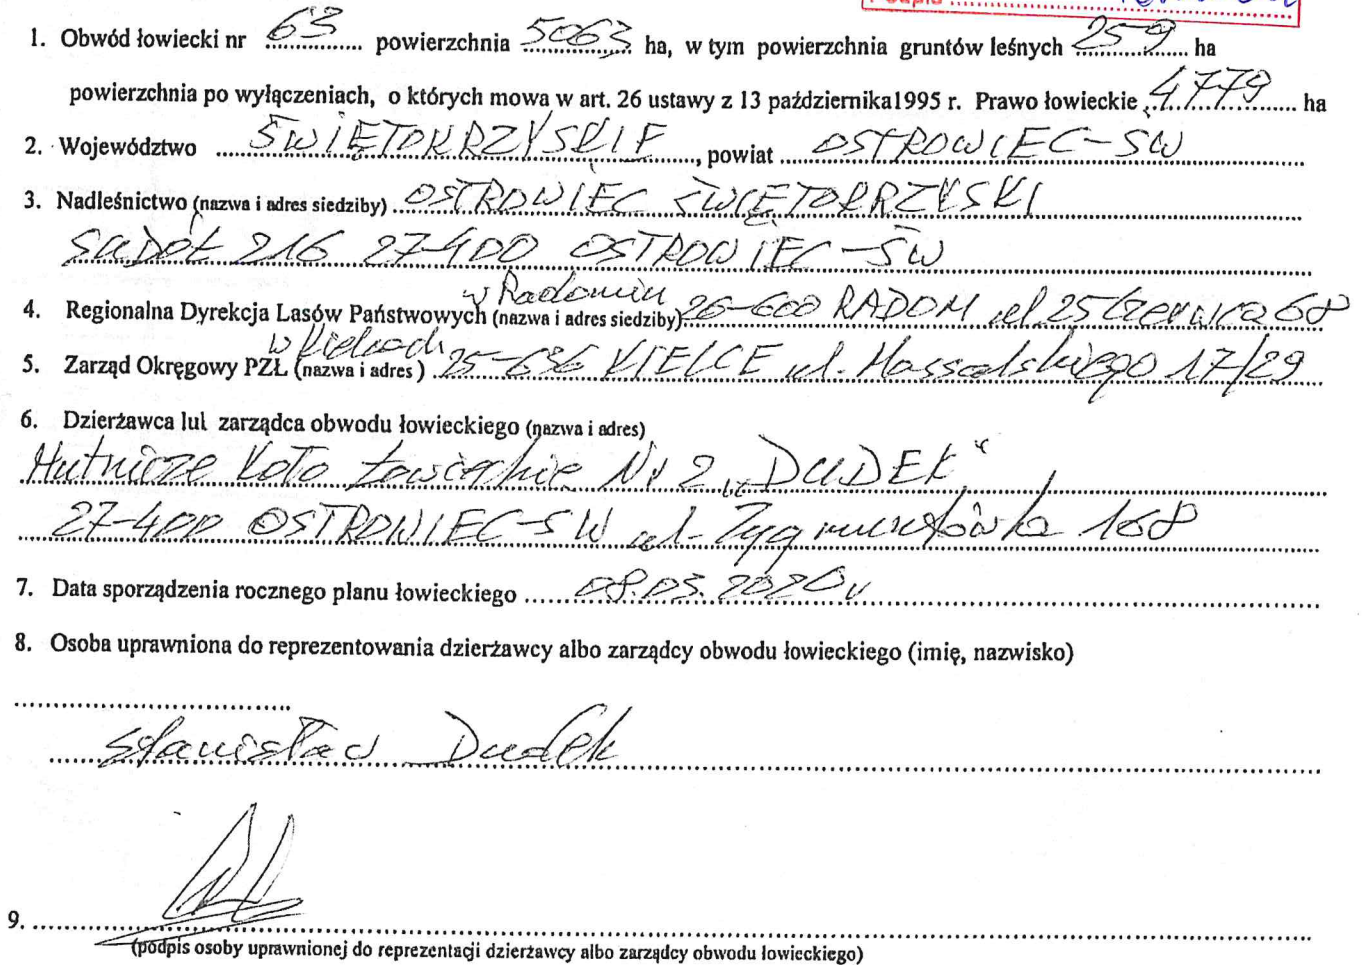 Podpis
1. Obwód łowiecki nr 63 powierzchnia 5063 ha, w tym powierzchnia gruntów leśnych 259 ha
powierzchnia po wyłączeniach, o których mowa w art. 26 ustawy z 13 października1995 r. Prawo łowieckie 4779 ha
2. Województwo ŚWIĘTOKRZYSKIE, powiat OSTROWIEC-ŚW
3. Nadleśnictwo (nazwa i adres siedziby) OSTROWIEC ŚWIĘTOKRZYSKI
SUDÓŁ 216 27-400 OSTROWIEC-ŚW
w Radomiu
4. Regionalna Dyrekcja Lasów Państwowych (nazwa i adres siedziby) 26-600 RADOM ul. 25 Czerwca 68
w Kielcach
5. Zarząd Okręgowy PZŁ (nazwa i adres ) 25-636 KIELCE ul. Massalskiego 17/29
6. Dzierżawca lul zarządca obwodu łowieckiego (nazwa i adres)
Hutnicze Koło Łowieckie Nr 2 „DUDEK"
27-400 OSTROWIEC-ŚW ul. Zygmuntówka 168
7. Data sporządzenia rocznego planu łowieckiego 08.03.2020r
8. Osoba uprawniona do reprezentowania dzierżawcy albo zarządcy obwodu łowieckiego (imię, nazwisko)
Stanisław Dudek
9.
(podpis osoby uprawnionej do reprezentacji dzierżawcy albo zarządcy obwodu łowieckiego)